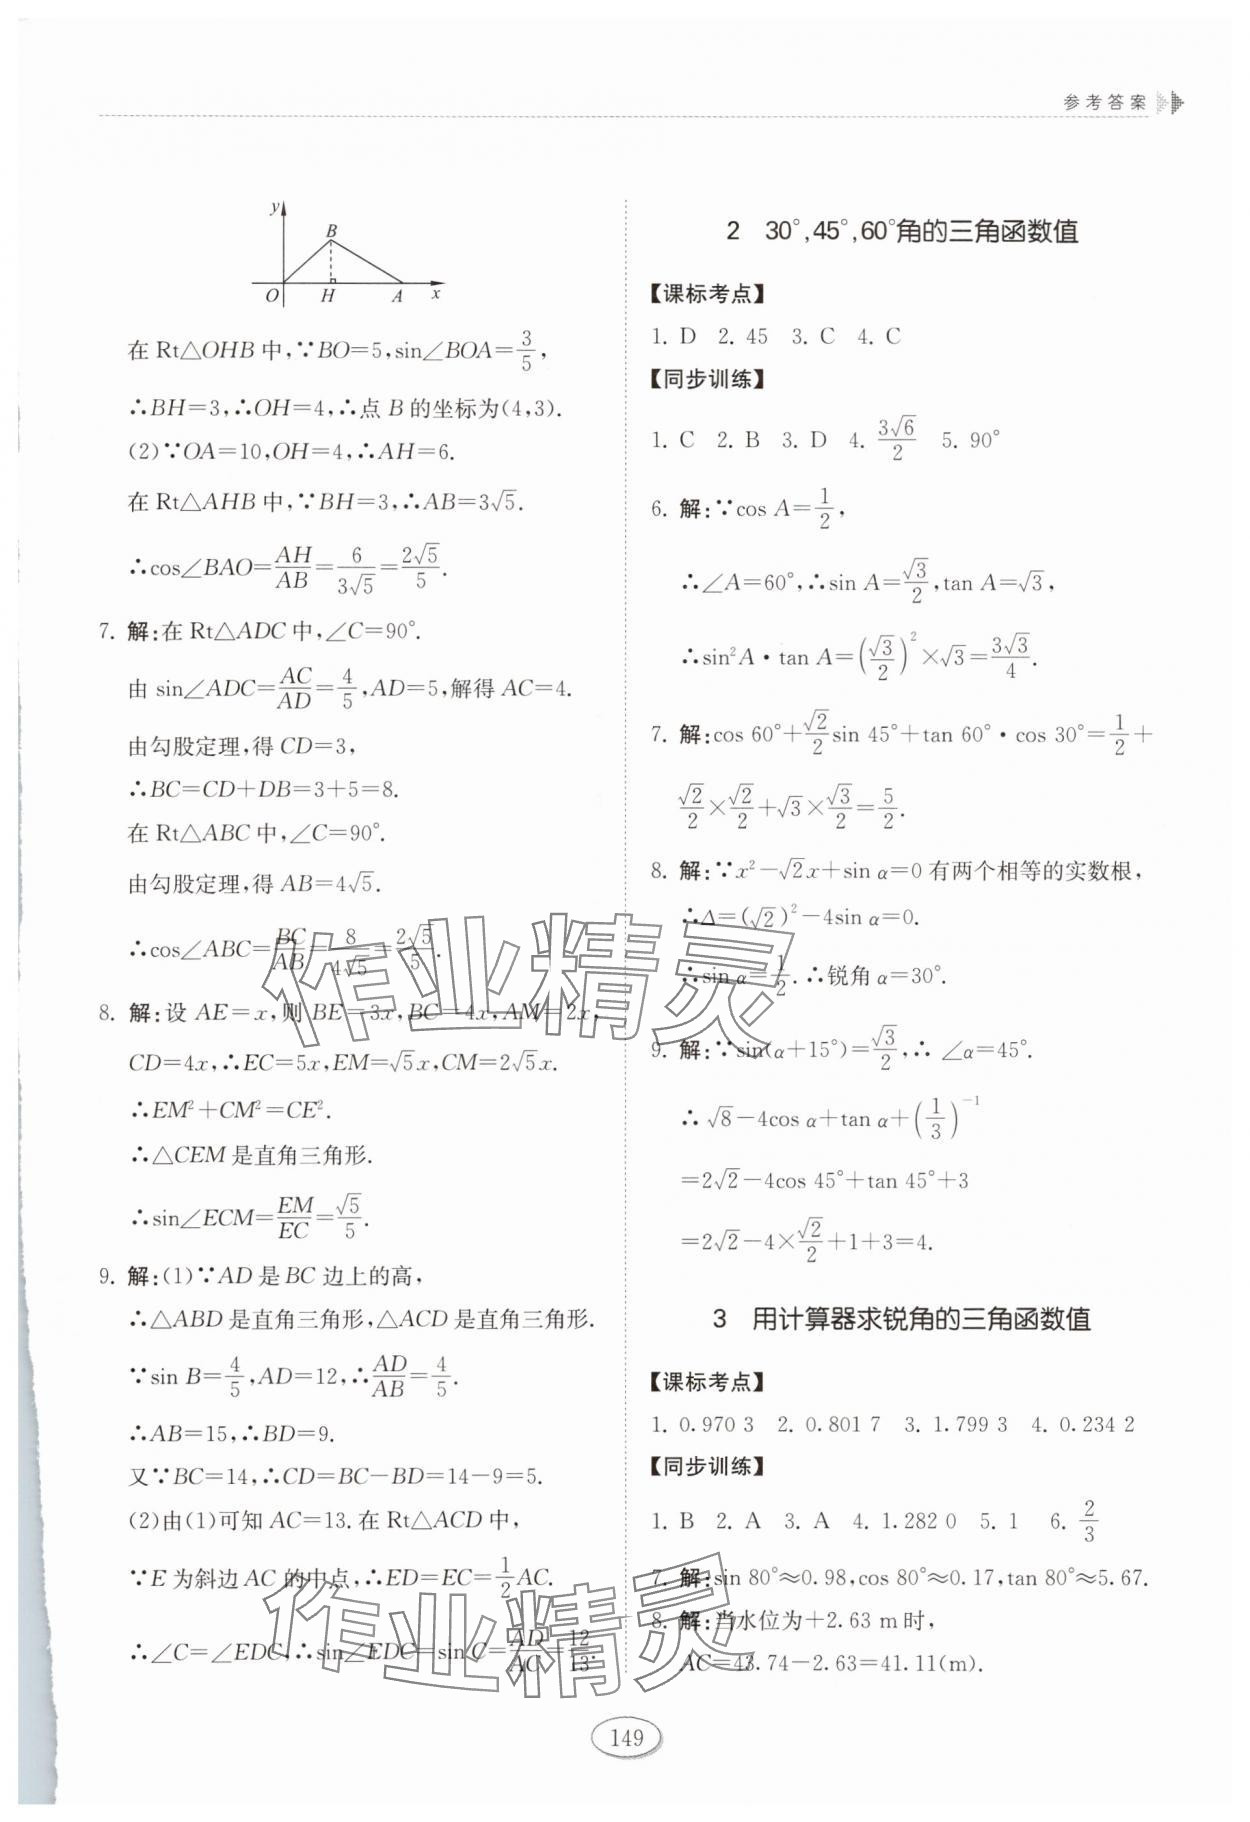 参考答案
y
B
O H A x
在 Rt△OHB 中,∵BO=5,sin∠BOA=3/5,
∴BH=3,∴OH=4,∴点 B 的坐标为(4,3).
(2)∵OA=10,OH=4,∴AH=6.
在 Rt△AHB 中,∵BH=3,∴AB=3√5.
∴cos∠BAO=AH/AB=6/(3√5)=2√5/5.
7. 解:在 Rt△ADC 中,∠C=90°.
由 sin∠ADC=AC/AD=4/5,AD=5,解得 AC=4.
由勾股定理,得 CD=3,
∴BC=CD+DB=3+5=8.
在 Rt△ABC 中,∠C=90°.
由勾股定理,得 AB=4√5.
∴cos∠ABC=BC/AB=8/(4√5)=2√5/5.
8. 解:设 AE=x,则 BE=3x,BC=4x,AM=2x,
CD=4x,∴EC=5x,EM=√5x,CM=2√5x.
∴EM²+CM²=CE².
∴△CEM 是直角三角形.
∴sin∠ECM=EM/EC=√5/5.
9. 解:(1)∵AD 是 BC 边上的高,
∴△ABD 是直角三角形,△ACD 是直角三角形.
∵sin B=4/5,AD=12,∴AD/AB=4/5.
∴AB=15,∴BD=9.
又∵BC=14,∴CD=BC−BD=14−9=5.
(2)由(1)可知 AC=13.在 Rt△ACD 中,
∵E 为斜边 AC 的中点,∴ED=EC=1/2AC.
∴∠C=∠EDC,∴sin∠EDC=sin C=AD/AC=12/13.
2 30°,45°,60°角的三角函数值
【课标考点】
1. D 2. 45 3. C 4. C
【同步训练】
1. C 2. B 3. D 4. 3√6/2 5. 90°
6. 解:∵cos A=1/2,
∴∠A=60°,∴sin A=√3/2,tan A=√3,
∴sin²A·tan A=(√3/2)²×√3=3√3/4.
7. 解:cos 60°+√2/2sin 45°+tan 60°·cos 30°=1/2+
√2/2×√2/2+√3×√3/2=5/2.
8. 解:∵x²−√2x+sin α=0 有两个相等的实数根,
∴Δ=(√2)²−4sin α=0.
∴sin α=1/2.∴锐角 α=30°.
9. 解:∵sin(α+15°)=√3/2,∴ ∠α=45°.
∴ √8−4cos α+tan α+(1/3)⁻¹
=2√2−4cos 45°+tan 45°+3
=2√2−4×√2/2+1+3=4.
3 用计算器求锐角的三角函数值
【课标考点】
1. 0.970 3 2. 0.801 7 3. 1.799 3 4. 0.234 2
【同步训练】
1. B 2. A 3. A 4. 1.282 0 5. 1 6. 2/3
7. 解:sin 80°≈0.98,cos 80°≈0.17,tan 80°≈5.67.
8. 解:当水位为+2.63 m时,
AC=43.74−2.63=41.11(m).
作业精灵
作业精灵
149